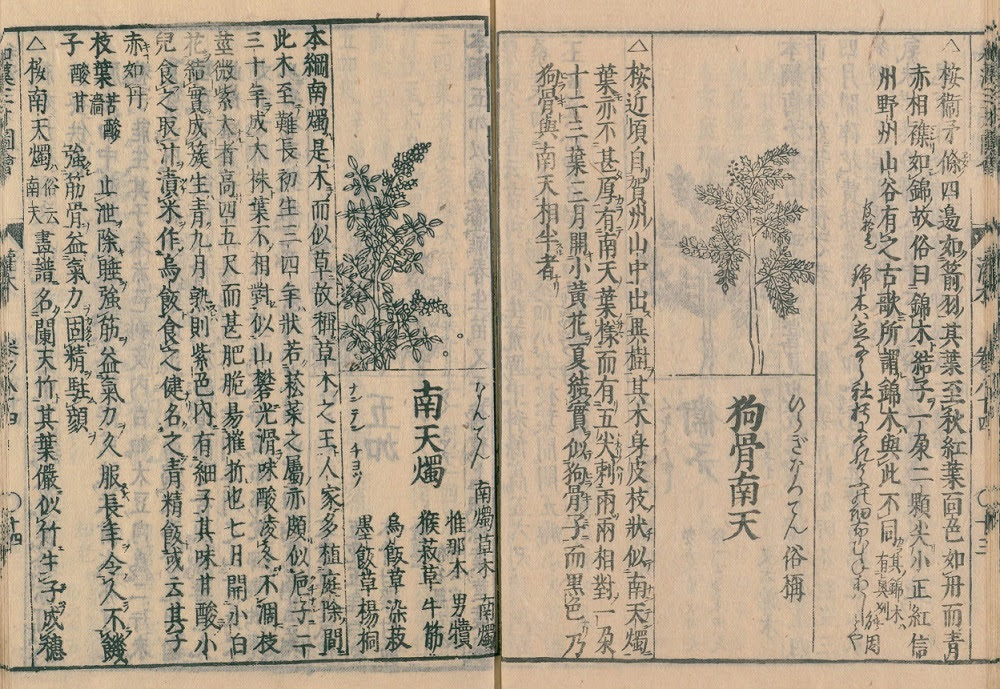 △桉衞矛條四邉如箭羽其葉至秋紅葉靣色如丹而青
赤相襍如錦故俗曰錦木結子一朶二顆尖小正紅信
州野州山谷有之古歌所謂錦木與此不同
錦木は立
ひらぎなんてん 俗稱
狗骨南天
△桉近頃自賀州山中出異樹其木身皮枝狀似南天燭
葉亦不甚厚有南天葉樣而有五尖刺兩兩相對一朶
十二三葉三月開小黄花夏結實似狗骨子而黒色乃
狗骨與南天相半者
なんてん
南天燭
ナンテン チヨツ
南燭草木 南燭
惟那木 男犢
猴菽草 牛筋
烏飯草 染菽
墨飯草 楊桐
本綱南燭是木而似草故稱草木之王人家多植庭除間
此木至難長初生三四年狀若菘菜之屬亦頗似巵子二
三十年成大株葉不相對似山礬光滑味酸凌冬不凋枝
莖微紫大者高四五尺而甚肥脆昜摧折也七月開小白
花結實成簇生青九月熟則紫色內有細子其味甘酸小
兒食之取汁漬米作烏飯食之健名之青精飯或云其子
赤如丹
枝葉 苦酸濇 止泄除睡強筋益氣力久服長年令人不饑
子 酸甘 強筋骨益氣力固精駐顔
△桉南天燭 俗云南天 盡諸名闌天竹其葉儼似竹生子成穗
卷八十四
〇十三
〇十四